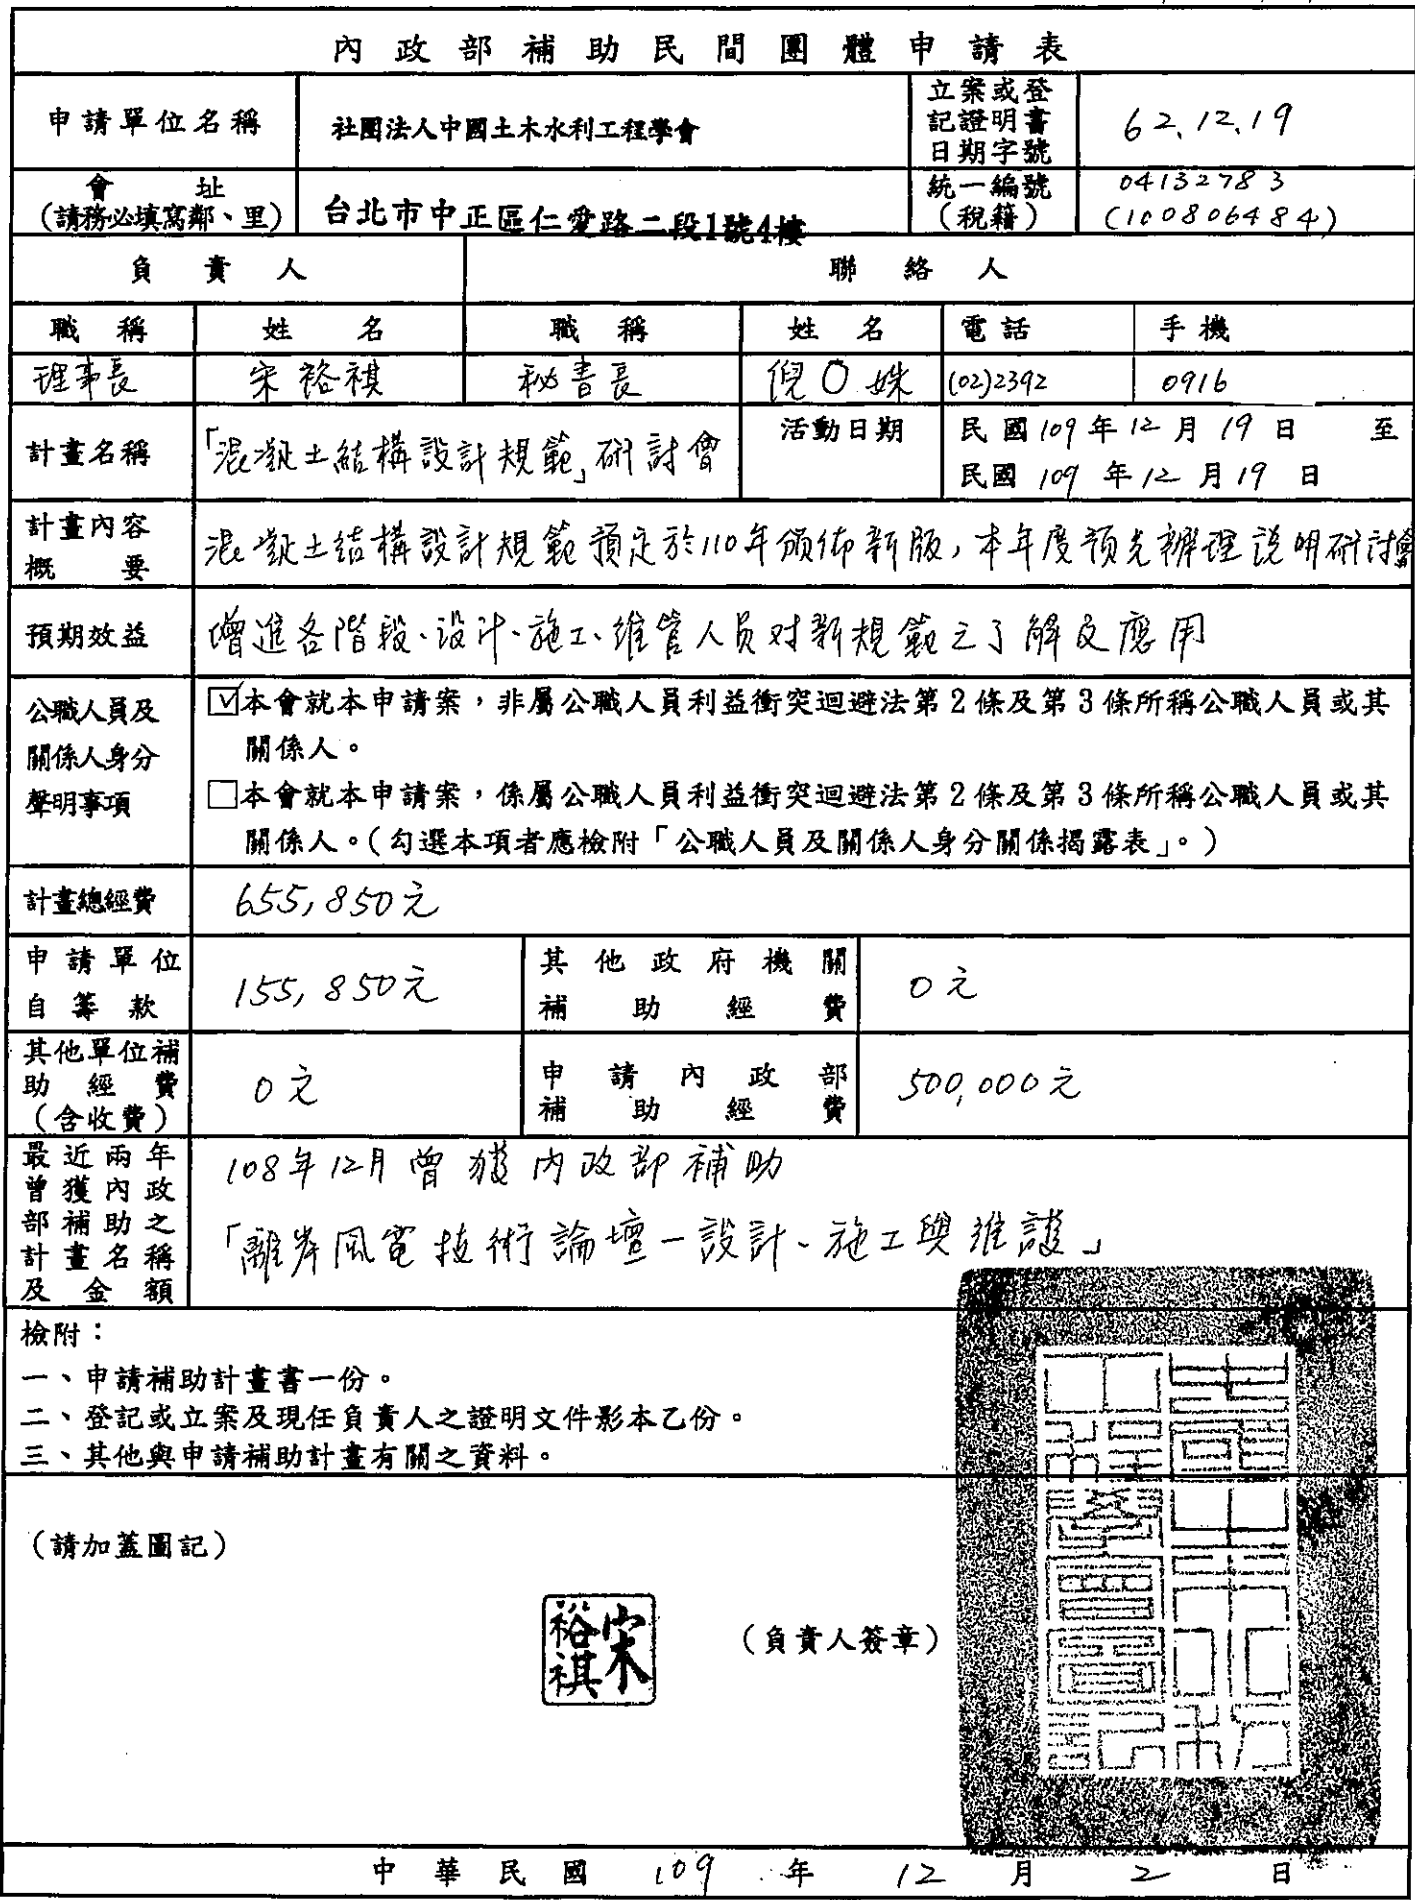 內政部補助民間團體申請表
申請單位名稱 社團法人中國土木水利工程學會 立案或登記證明書日期字號 62.12.19
會址(請務必填寫鄰、里) 台北市中正區仁愛路二段1號4樓 統一編號(稅籍) 04132783 (100806484)
負責人 聯絡人
職稱 姓名 職稱 姓名 電話 手機
理事長 宋裕祺 秘書長 倪O姝 (02)2392 0916
計畫名稱 「混凝土結構設計規範」研討會 活動日期 民國109年12月19日 至
民國109年12月19日
計畫內容概要 混凝土結構設計規範預定於110年頒佈新版,本年度預先辦理說明研討會
預期效益 增進各階段、设计、施工、維管人员对新規範之了解及應用
公職人員及
關係人身分
聲明事項
☑本會就本申請案,非屬公職人員利益衝突迴避法第2條及第3條所稱公職人員或其
關係人。
□本會就本申請案,係屬公職人員利益衝突迴避法第2條及第3條所稱公職人員或其
關係人。(勾選本項者應檢附「公職人員及關係人身分關係揭露表」。)
計畫總經費 655,850元
申請單位自籌款 155,850元 其他政府機關補助經費 0元
其他單位補助經費(含收費) 0元 申請內政部補助經費 500,000元
最近兩年
曾獲內政
部補助之
計畫名稱
及金額
108年12月曾獲內政部補助
「離岸風電技術論壇-設計、施工與維護」
檢附:
一、申請補助計畫書一份。
二、登記或立案及現任負責人之證明文件影本乙份。
三、其他與申請補助計畫有關之資料。
(請加蓋圖記)
宋裕祺
(負責人簽章)
中華民國 109 年 12 月 2 日